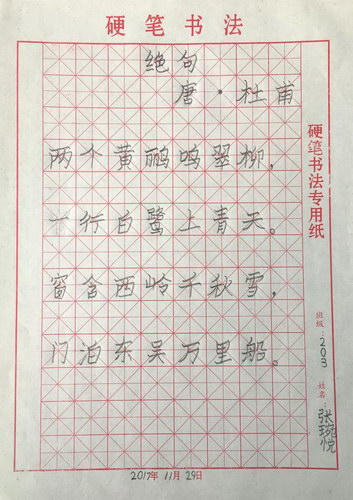 硬笔书法
绝句
唐·杜甫
两个黄鹂鸣翠柳，
一行白鹭上青天。
窗含西岭千秋雪，
门泊东吴万里船。
硬笔书法专用纸
班级：203
姓名：张琬悦
2017年11月29日